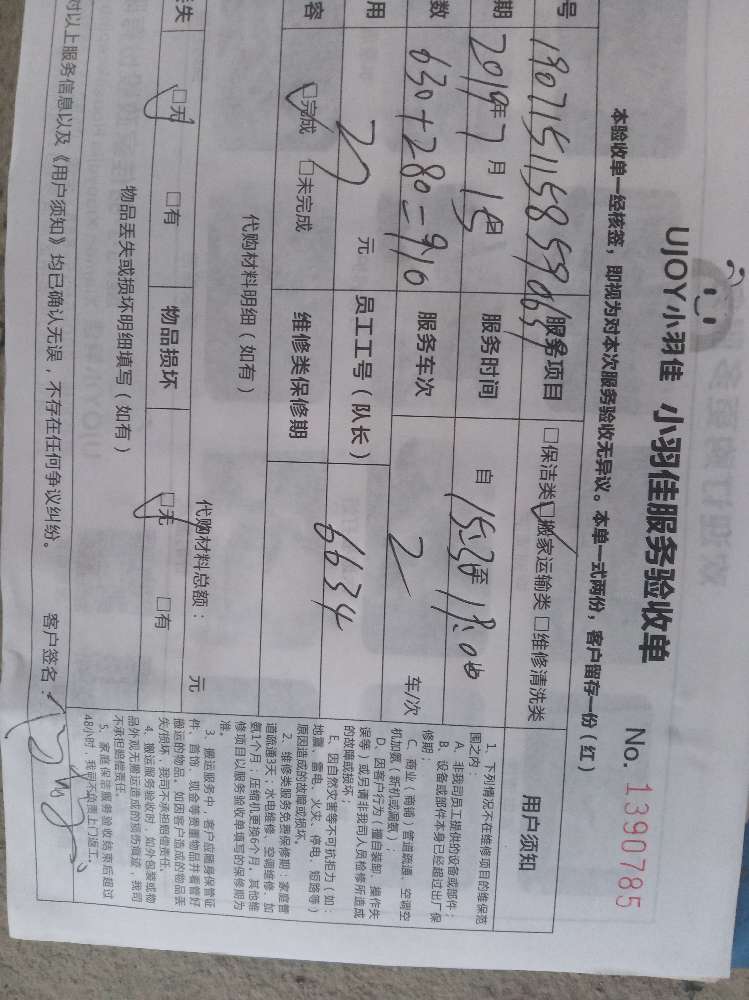 UJOY小羽佳 小羽佳服务验收单
No. 1390785
本验收单一经核签，即视为对本次服务验收无异议。本单一式两份，客户留存一份（红）
号 服务项目 □保洁类 □搬家运输类 □维修清洗类
期 2019年7月15日 服务时间 自15:30至18:00
数 630+280=910 服务车次 2 车/次
用 元 员工工号（队长） 6634
容 □完成 □未完成 维修类保修期
代购材料明细（如有） 代购材料总额： 元
丢失 □无 □有 物品损坏 □无 □有
物品丢失或损坏明细填写（如有）
对以上服务信息以及《用户须知》均已确认无误，不存在任何争议纠纷。 客户签名：
用户须知
1、下列情况不在维修项目的维保范
围之内：
A、非我司员工提供的设备或部件；
B、设备或部件本身已经超过出厂保
修期；
C、商业（商铺）管道疏通、空调空
机加氨（新机或漏氨）；
D、因客户行为（擅自装卸、操作失
误等）或另请非我司人员检修所造成
的故障或损坏；
E、因自然灾害等不可抗拒力（如：
地震、雷电、火灾、停电、短路等）
原因造成的故障或损坏。
2、维修类服务免费保修期：家庭管
道疏通3天；水电维修、空调维修、加
氨1个月；压缩机更换6个月，其他维
修项目以服务验收单填写的保修期为
准。
3、搬运服务中，客户应随身保管证
件、首饰、现金等贵重物品并看管好
搬运的物品。如因客户造成的物品丢
失/损坏，我司不承担赔偿责任。
4、搬运服务验收时，如外包装或物
品外观无搬运造成的损伤痕迹，我司
不承担赔偿责任。
5、家庭保洁服务验收结束后超过
48小时，我司不负责上门返工。